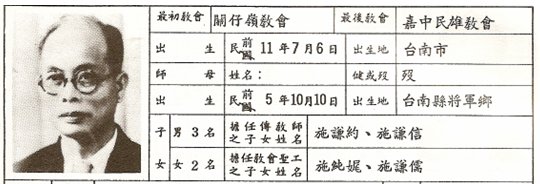 最初教會 關仔嶺敎會 最後教會 嘉中民雄敎會
出生 民前國 11年7月6日 出生地 台南市
師母 姓名： 健或歿 歿
出生 民前國 5年10月10日 出生地 台南縣將軍鄉
子 男3名 擔任傳教師之子女姓名 施謙約、施謙信
女 女2名 擔任教會聖工之子女姓名 施純娓、施謙儒